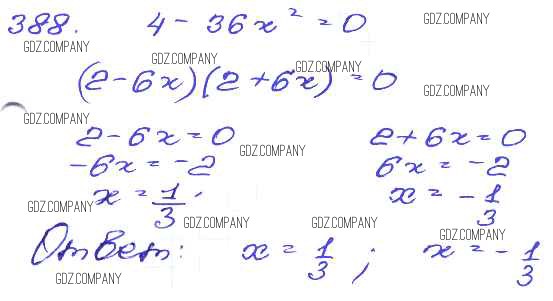 388. 4 - 36x² = 0
GDZ.COMPANY
GDZ.COMPANY
GDZ.COMPANY
(2 - 6x)(2 + 6x) = 0
GDZ.COMPANY
GDZ.COMPANY
GDZ.COMPANY
2 - 6x = 0 2 + 6x = 0
GDZ.COMPANY
-6x = -2 6x = -2
x = 1/3 x = -1/3
GDZ.COMPANY
GDZ.COMPANY
GDZ.COMPANY
GDZ.COMPANY
Ответ: x = 1/3 ; x = -1/3
GDZ.COMPANY